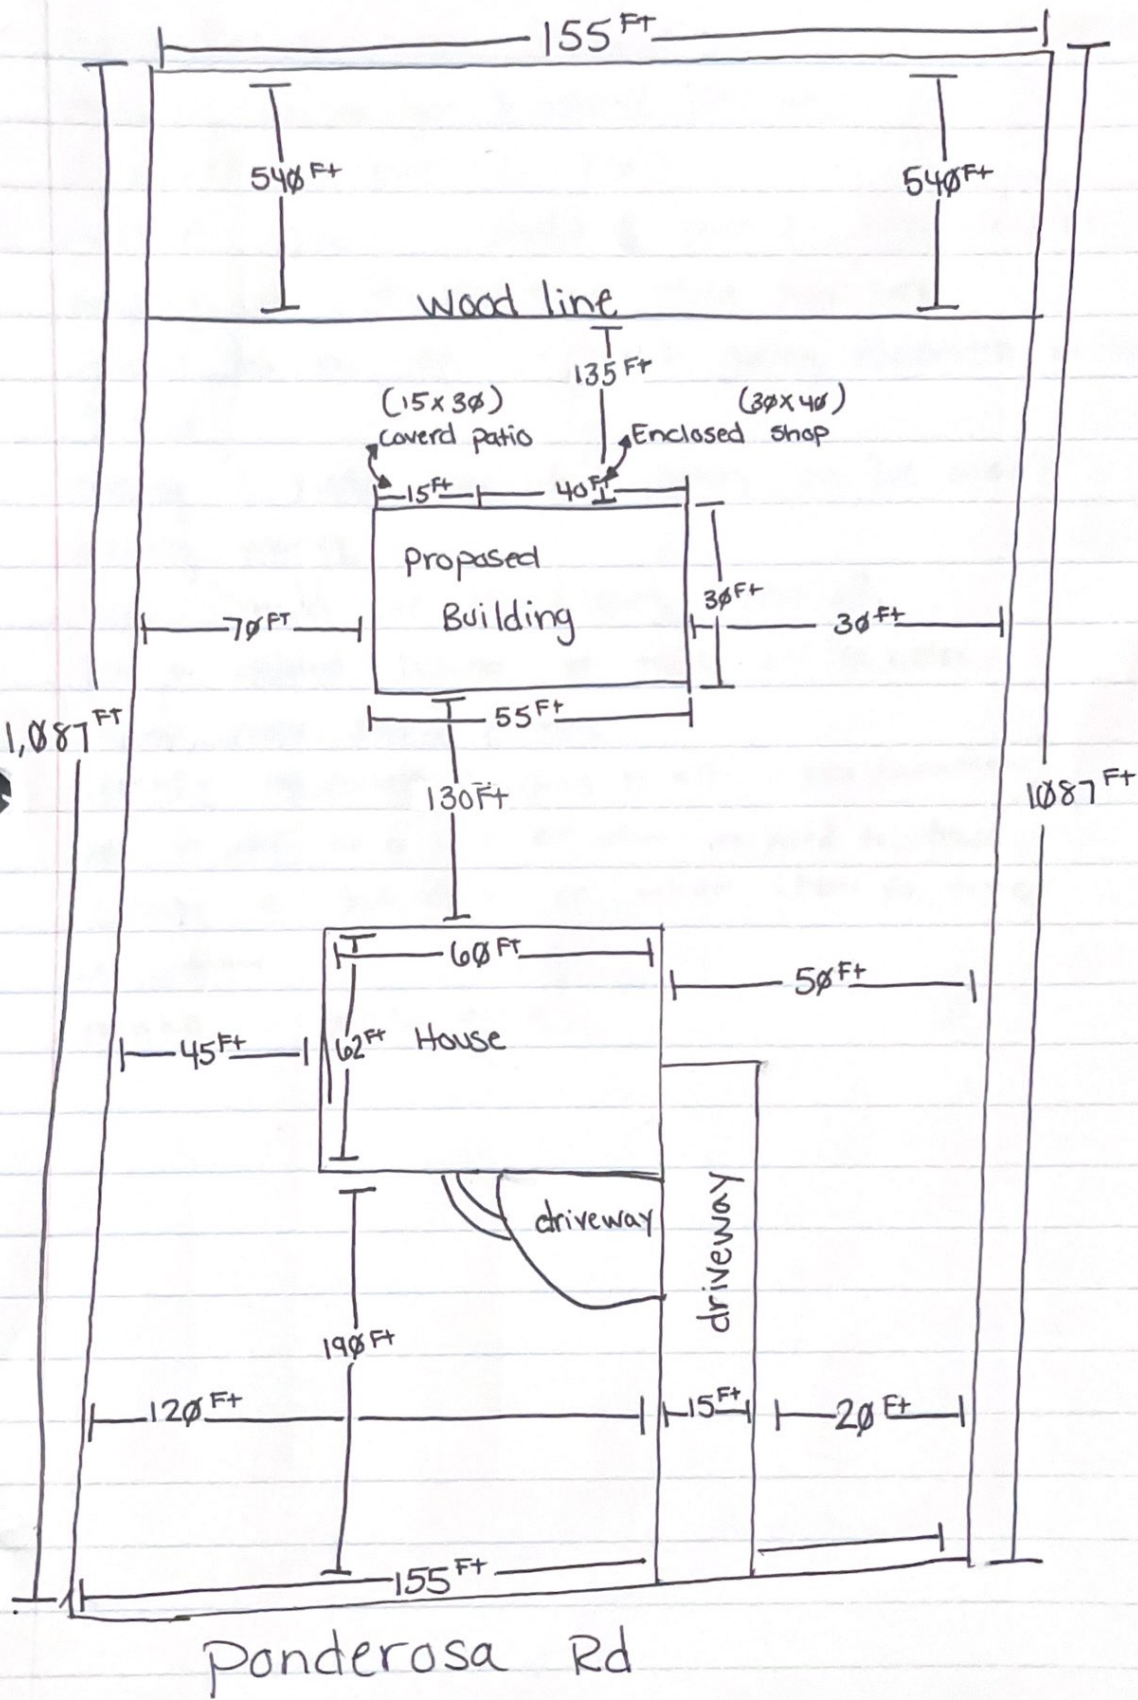 155 Ft
540 Ft
540 Ft
wood line
135 Ft
(15x30)
coverd patio
(30x40)
Enclosed shop
15 Ft
40 Ft
Proposed
Building
30 Ft
70 FT
30 Ft
55 Ft
1,087 FT
1087 Ft
130 Ft
60 FT
50 Ft
62 Ft
House
45 Ft
driveway
driveway
190 Ft
120 Ft
15 Ft
20 Ft
155 Ft
Ponderosa Rd